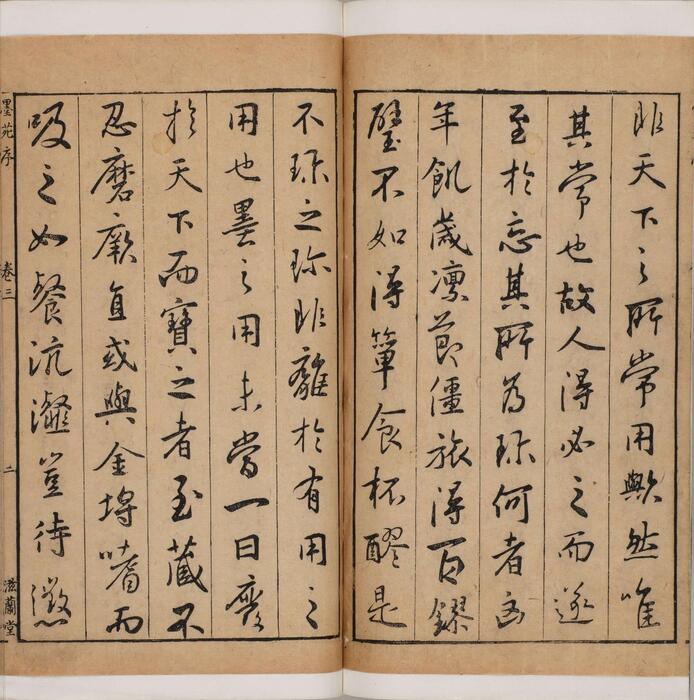 非天下之所常用歟然唯
其常也故人得必之而遂
至於忘其所為珎何者凶
年飢歲凛節僵旅得百鏐
璧不如得簞食杯醪是
不珎之珎非離於有用之
用也墨之用未嘗一日廢
於天下而寶之者至藏不
忍磨厥直或與金埒嗜而
吸之如餐沆瀣豈待懲
墨苑序
卷三
二
滋蘭堂